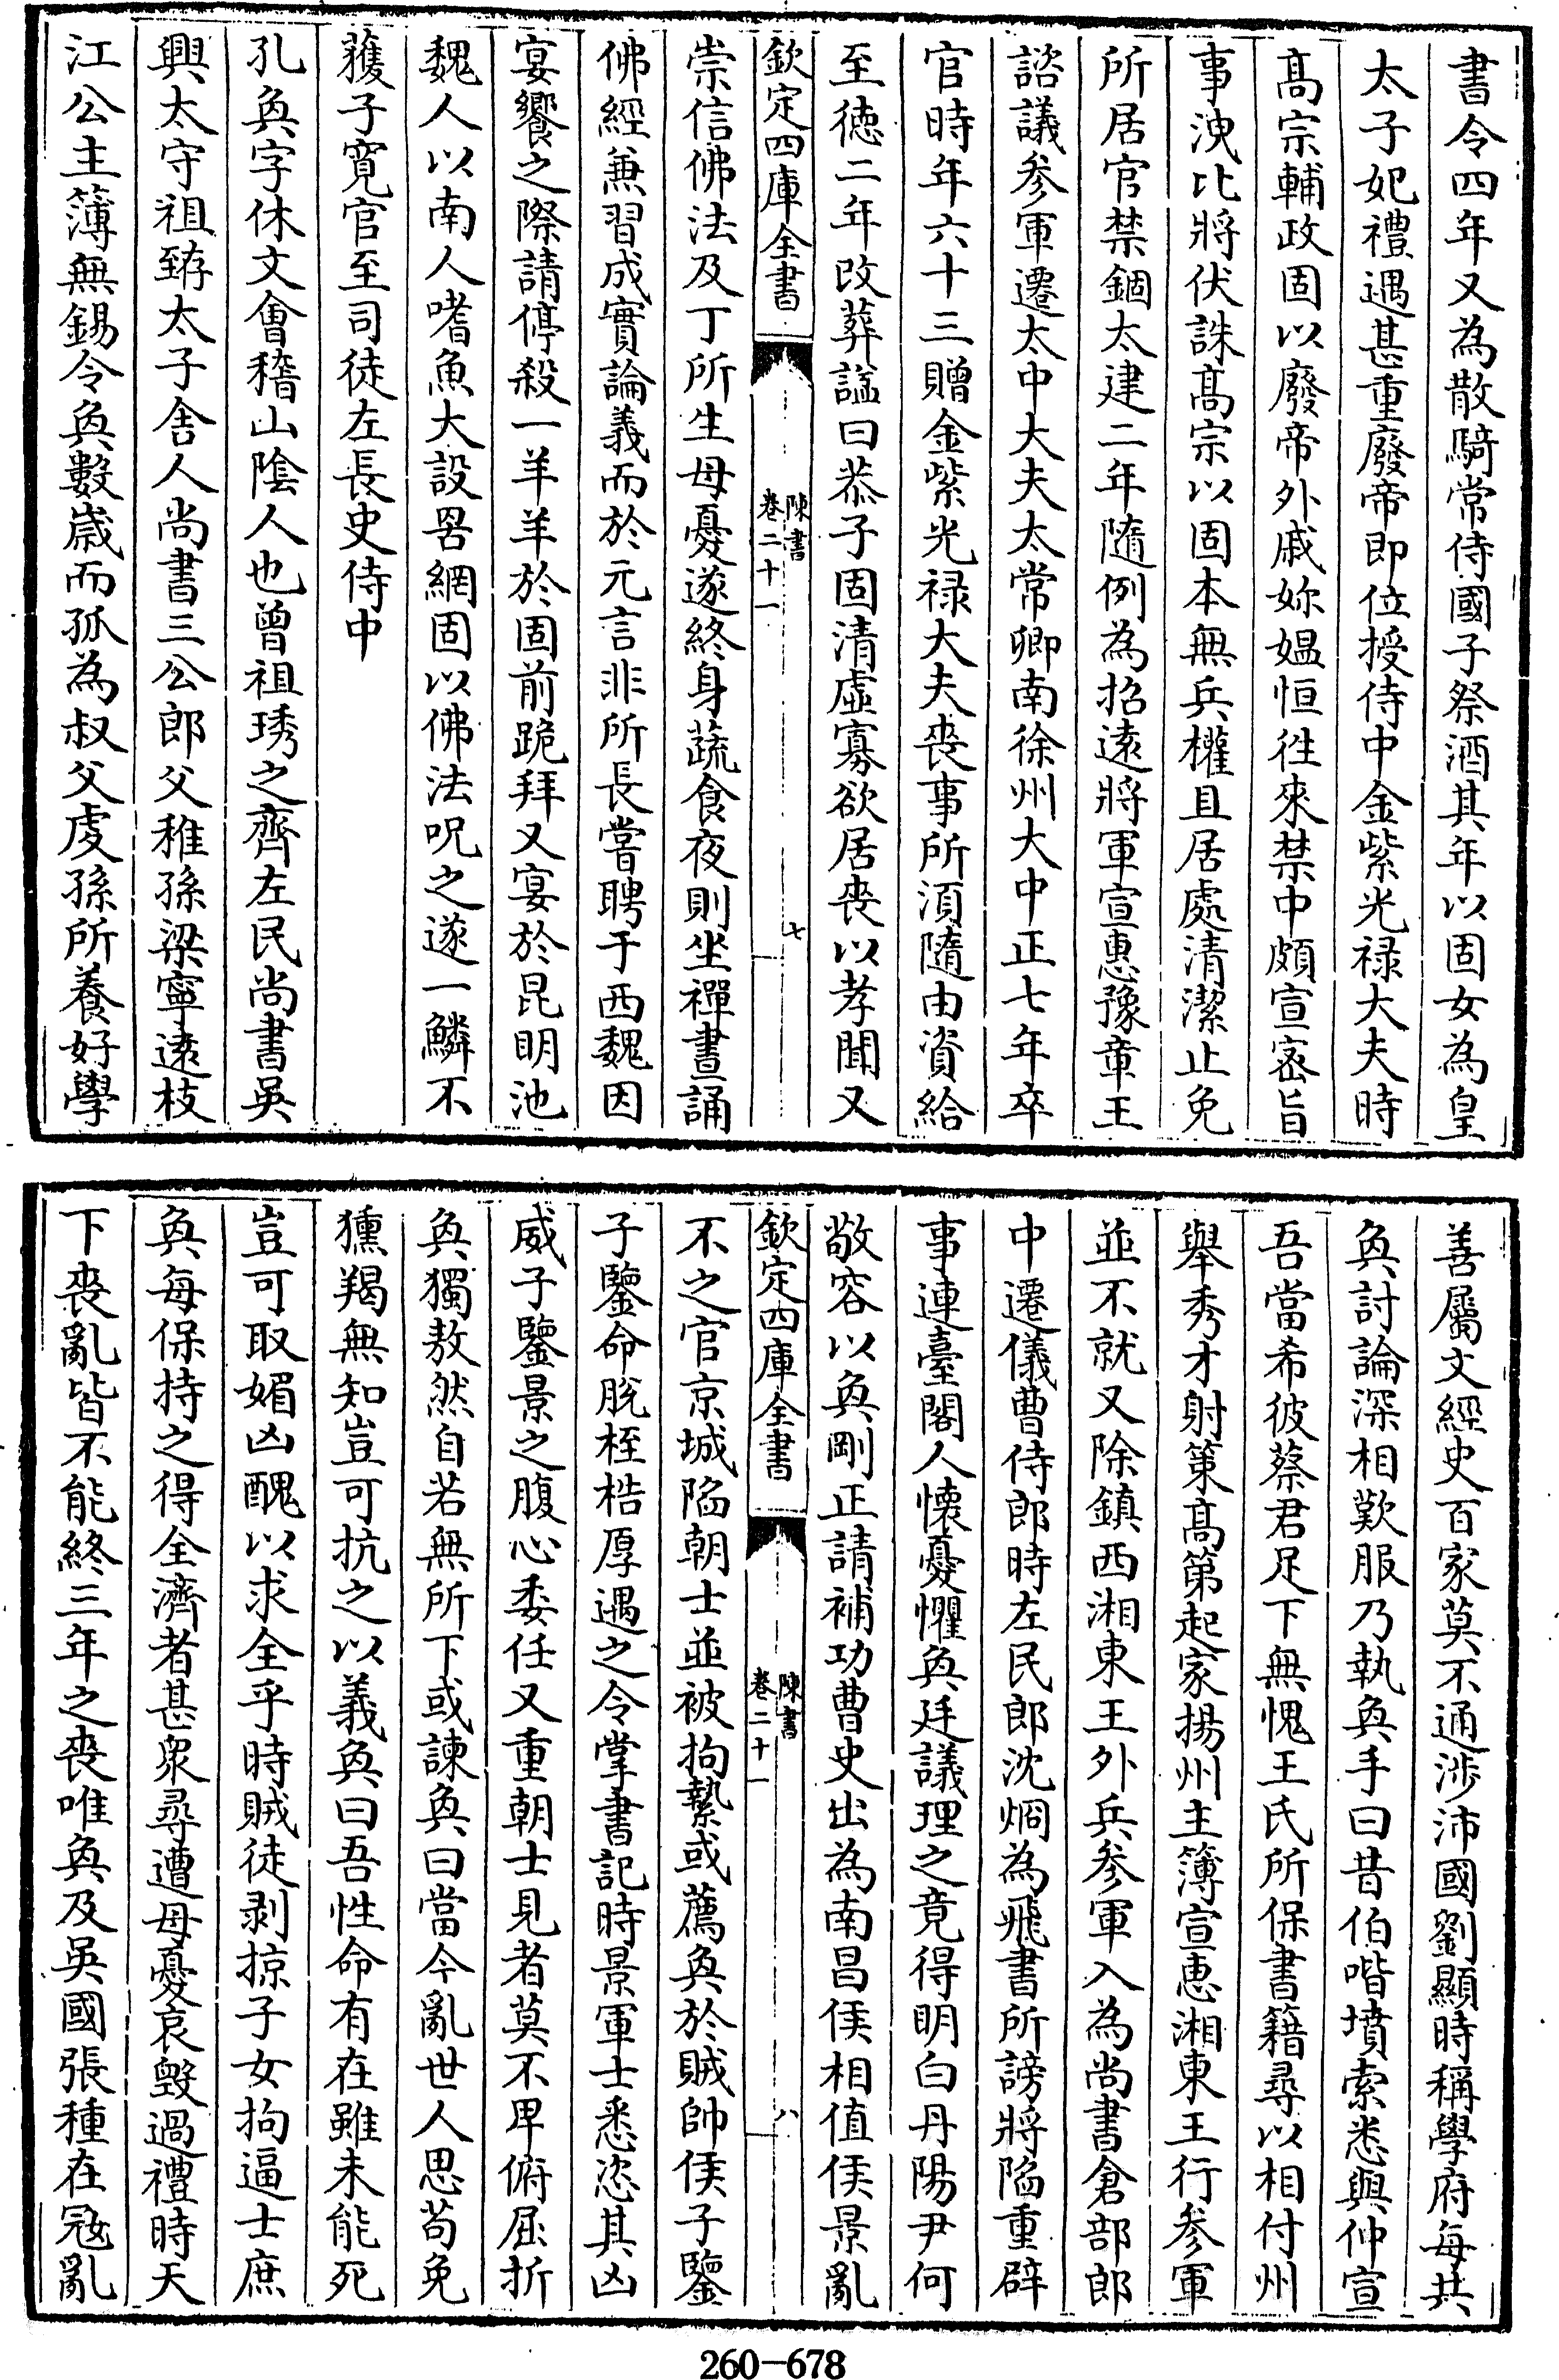 書令四年又為散騎常侍國子祭酒其年以固女為皇
太子妃禮遇甚重廢帝即位授侍中金紫光禄大夫時
髙宗輔政固以廢帝外戚妳媪恒徃來禁中頗宣宻旨
事洩比將伏誅髙宗以固本無兵權且居處清潔止免
所居官禁錮太建二年隨例為招逺將軍宣惠豫章王
諮議參軍遷太中大夫太常卿南徐州大中正七年卒
官時年六十三贈金紫光禄大夫喪事所須隨由資給
至徳二年改葬諡曰恭子固清虚寡欲居喪以孝聞又
欽定四庫全書
陳書
卷二十一
七
崇信佛法及丁所生母憂遂終身蔬食夜則坐禪晝誦
佛經兼習成實論義而於元言非所長嘗聘于西魏因
宴饗之際請停殺一羊羊於固前跪拜又宴於昆明池
魏人以南人嗜魚大設罟網固以佛法呪之遂一鱗不
獲子寛官至司徒左長史侍中
孔奐字休文會稽山陰人也曾祖琇之齊左民尚書吳
興太守祖臶太子舍人尚書三公郎父稚孫梁寧逺枝
江公主簿無錫令奐數歲而孤為叔父䖍孫所養好學
善屬文經史百家莫不通渉沛國劉顯時稱學府每共
奐討論深相歎服乃執奐手曰昔伯喈墳索悉與仲宣
吾當希彼蔡君足下無愧王氏所保書籍尋以相付州
舉秀才射策髙第起家揚州主簿宣惠湘東王行參軍
並不就又除鎮西湘東王外兵參軍入為尚書倉部郎
中遷儀曹侍郎時左民郎沈烱為飛書所謗將陷重辟
事連臺閣人懷憂懼奐廷議理之竟得明白丹陽尹何
敬容以奐剛正請補功曹史出為南昌侯相值侯景亂
欽定四庫全書
陳書
卷二十一
八
不之官京城陷朝士並被拘縶或薦奐於賊帥侯子鑒
子鑒命脱桎梏厚遇之令掌書記時景軍士悉恣其凶
威子鑒景之腹心委任又重朝士見者莫不卑俯屈折
奐獨敖然自若無所下或諫奐曰當今亂世人思茍免
獯羯無知豈可抗之以義奐曰吾性命有在雖未能死
豈可取媚凶醜以求全乎時賊徒剥掠子女拘逼士庶
奐每保持之得全濟者甚衆尋遭母憂哀毁過禮時天
下喪亂皆不能終三年之喪唯奐及吳國張種在冦亂
260-678